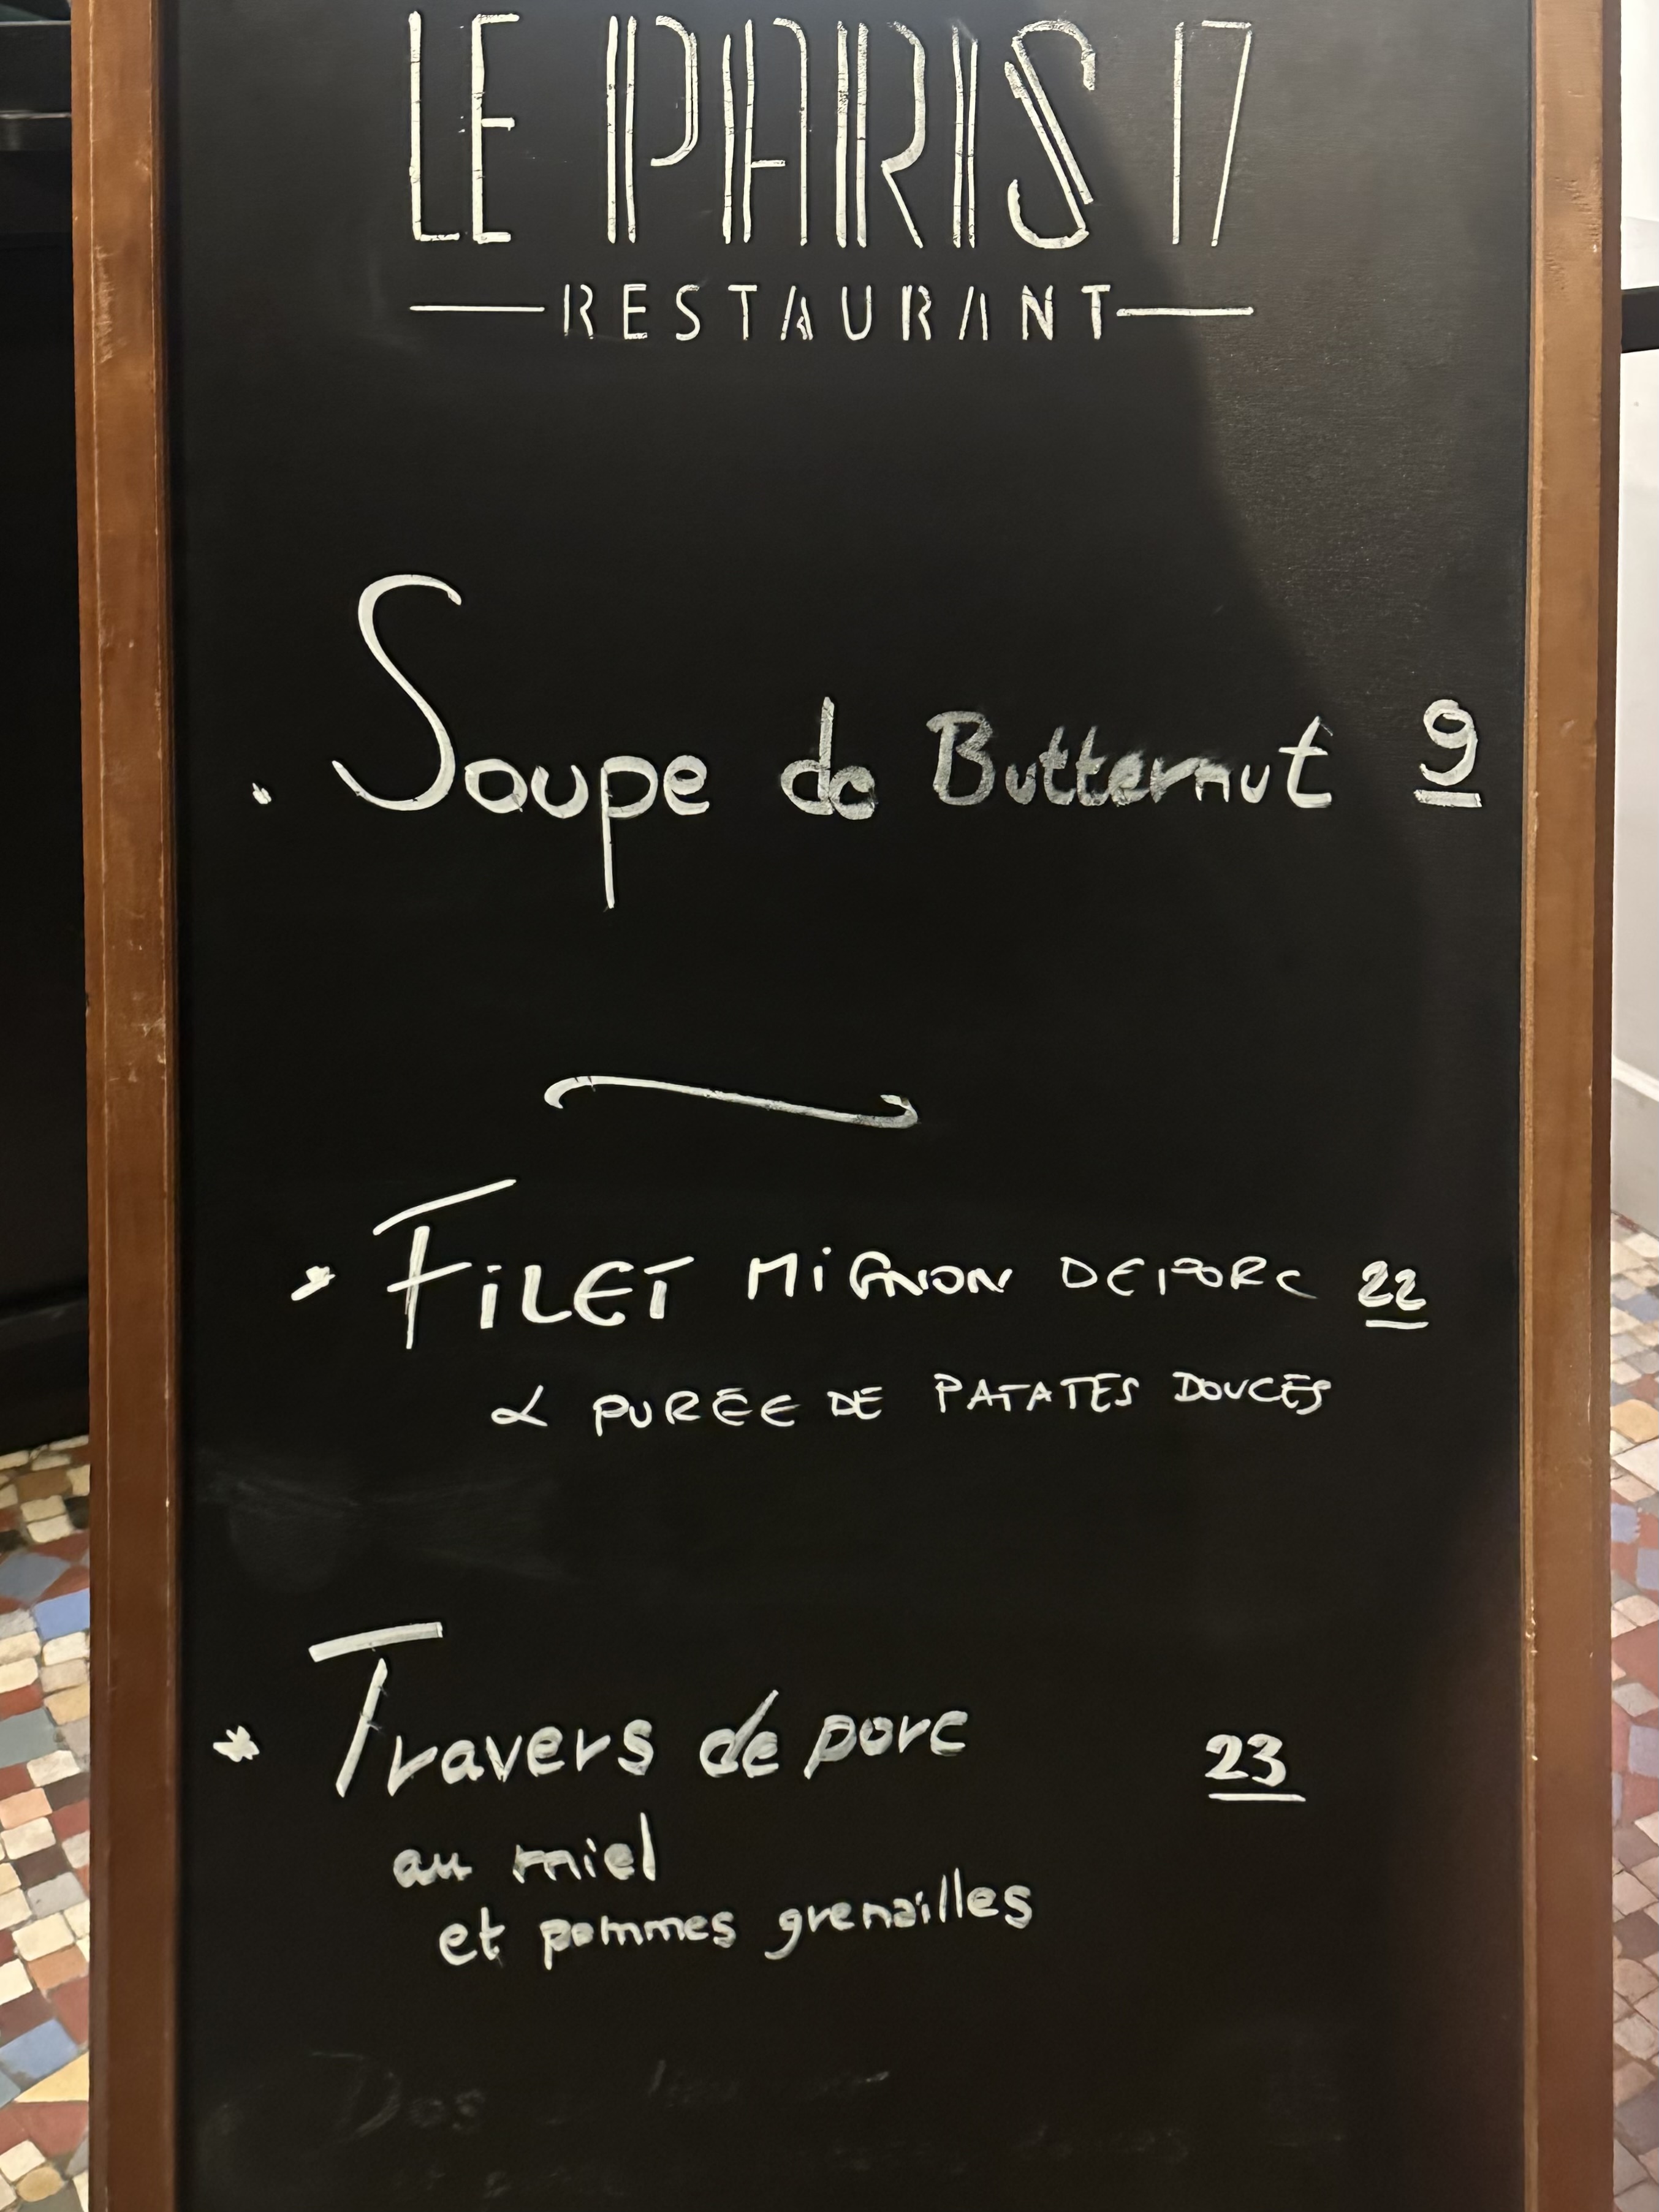 LE PARIS 17
RESTAURANT
. Soupe de Butternut 9
* FiLET MiGNON DE PORC 22
& PURÉE DE PATATES DOUCES
* Travers de porc 23
au miel
et pommes grenailles